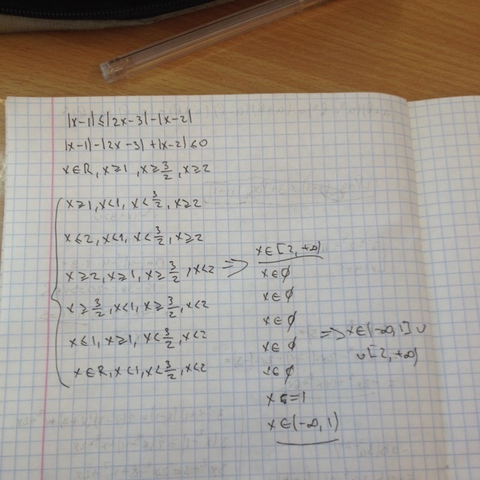 |x-1|≤|2x-3|-|x-2|
|x-1|-|2x-3|+|x-2|≤0
x∈R, x≥1, x≥3/2, x≥2
x≥1, x<1, x<3/2, x≥2
x≤2, x<1, x<3/2, x≥2
x≥2, x≥1, x≥3/2, x<2 =>
x≥3/2, x<1, x≥3/2, x<2
x≤1, x≥1, x<3/2, x<2
x∈R, x<1, x<3/2, x<2
x∈[2, +∞)
x∈∅
x∈∅
x∈∅
x∈∅
x∈∅
x=1
x∈(-∞, 1)
=> x∈(-∞, 1] ∪
∪ [2, +∞)